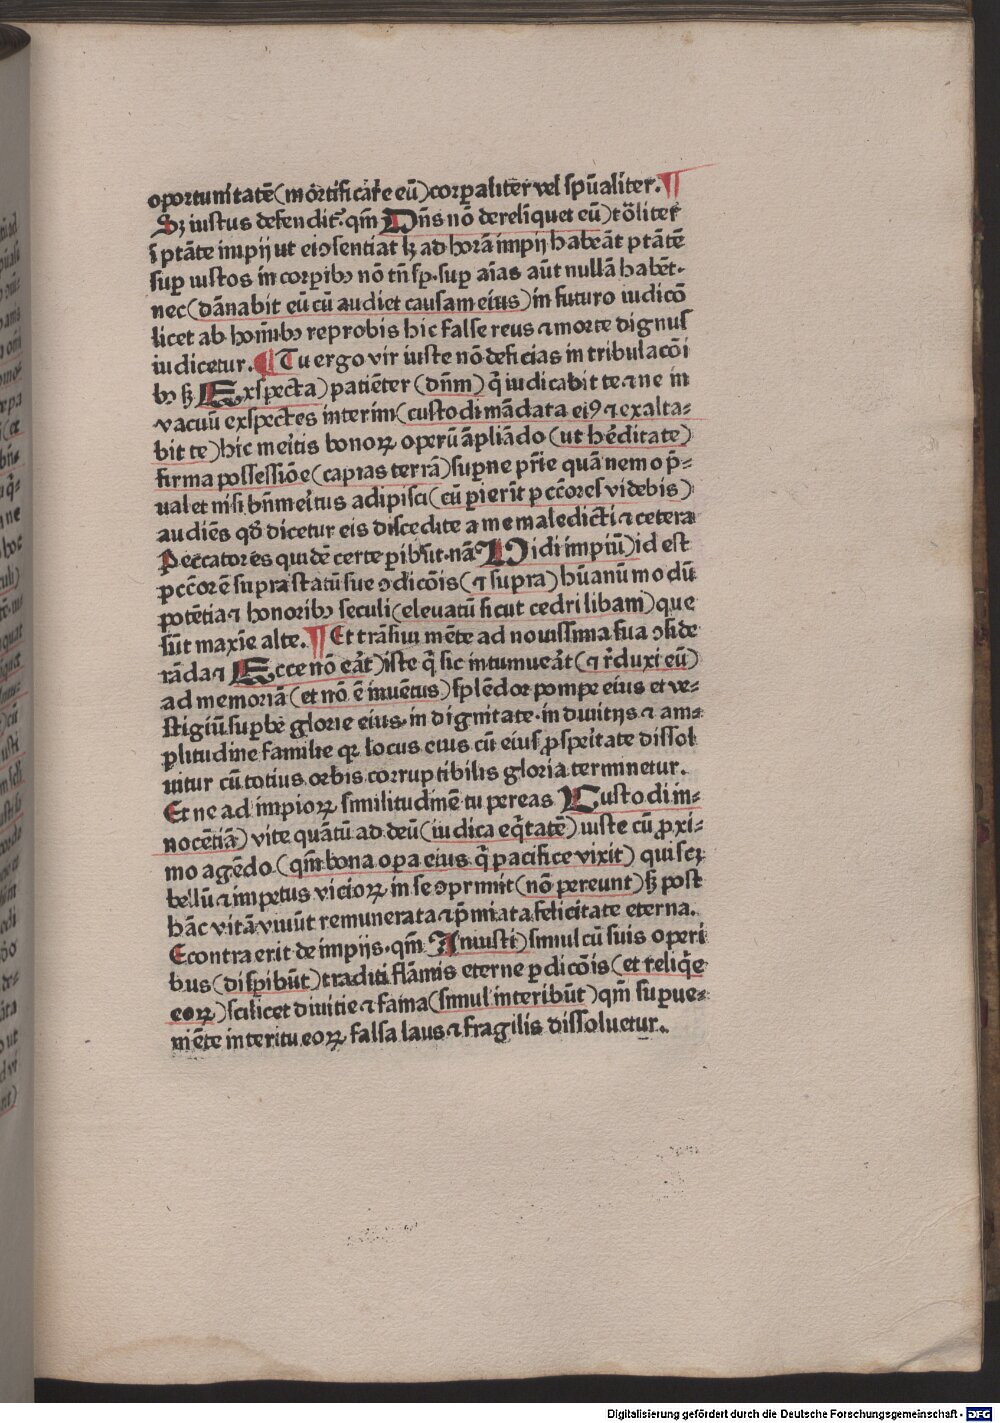 oportunitatē(mortificare eū)corꝑaliter vel spūaliter.¶
Sꝫ iustus defendit̄. qm̄ Dn̄s nō dereliquet eū)totliter
ī ptāte impij ut ei ꝯsentiat lꝫ ad horā impij habeāt ptātē
suꝑ iustos in corꝑibꝰ nō tn̄ sꝑ. suꝑ aīas aūt nullā habēt.
nec(dānabit eū cū audiet causam eius)in futuro iudicō
licet ab hoībꝰ reprobis hic false reus ⁊ morte dignus
iudicetur.¶Tu ergo vir iuste nō deficias in tribulacōi
bꝰ sꝫ Exspecta) patiēter (dn̄m) q̄ iudicabit te ⁊ ne in
vacuū exspectes interim(custodi mādata eiꝰ ⁊ exalta-
bit te)hic meītis bonoꝝ operū āpliādo (ut hēditate)
firma possessiōe(capias terrā)suꝑne pr̄ie quā nemo p̄-
ualet nisi bn̄meītus adipisci(cū ꝑierīt pccōres videbis)
audiēs qd̄ dicetur eis discedite a me maledicti ⁊ cetera
Peccatores quidē certe ꝑibūt. nā Uidi impiū)id est
pccōrē supra statū sue ꝯdicōis(⁊ supra)hūanū modū
potētia ⁊ honoribꝰ seculi(eleuatū sicut cedri libani)que
sūt maxīe alte.¶Et trāsiui mēte ad nouissima sua ꝯside
rāda ⁊ Ecce nō eāt)iste q̄ sic intumueāt(⁊ r̄duxi eū)
ad memoriā(et nō ē inuētus)splēdor pompe eius et ve-
stigiū suꝑbe glorie eius. in dignitate. in diuitijs ⁊ am-
plitudine familie qꝛ locus eius cū eius ꝓsperitate dissol
uitur cū totius orbis corruptibilis gloria terminetur.
Et ne ad impioꝝ similitudinē tu pereas Custodi in-
nocētiā) vite quātū ad deū(iudica eq̄tatē) iuste cū ꝓxi-
mo agēdo (qm̄ bona oꝑa eius q̄ pacifice vixit) qui scꝫ
bellū ⁊ impetus vicioꝝ in se ꝯprimit(nō pereunt)sꝫ post
hāc vitā viuūt remunerata ⁊ p̄miata felicitate eterna.
Econtra erit de impijs. qm̄ Iniusti) simul cū suis operi
bus(disꝑibūt)traditi flāmis eterne ꝑdicōis(et reliq̄e
eoꝝ)scilicet diuitie ⁊ fama(simul interibūt)qm̄ suꝑue-
niēte interitu eoꝝ falsa laus ⁊ fragilis dissoluetur.
Digitalisierung gefördert durch die Deutsche Forschungsgemeinschaft - DFG